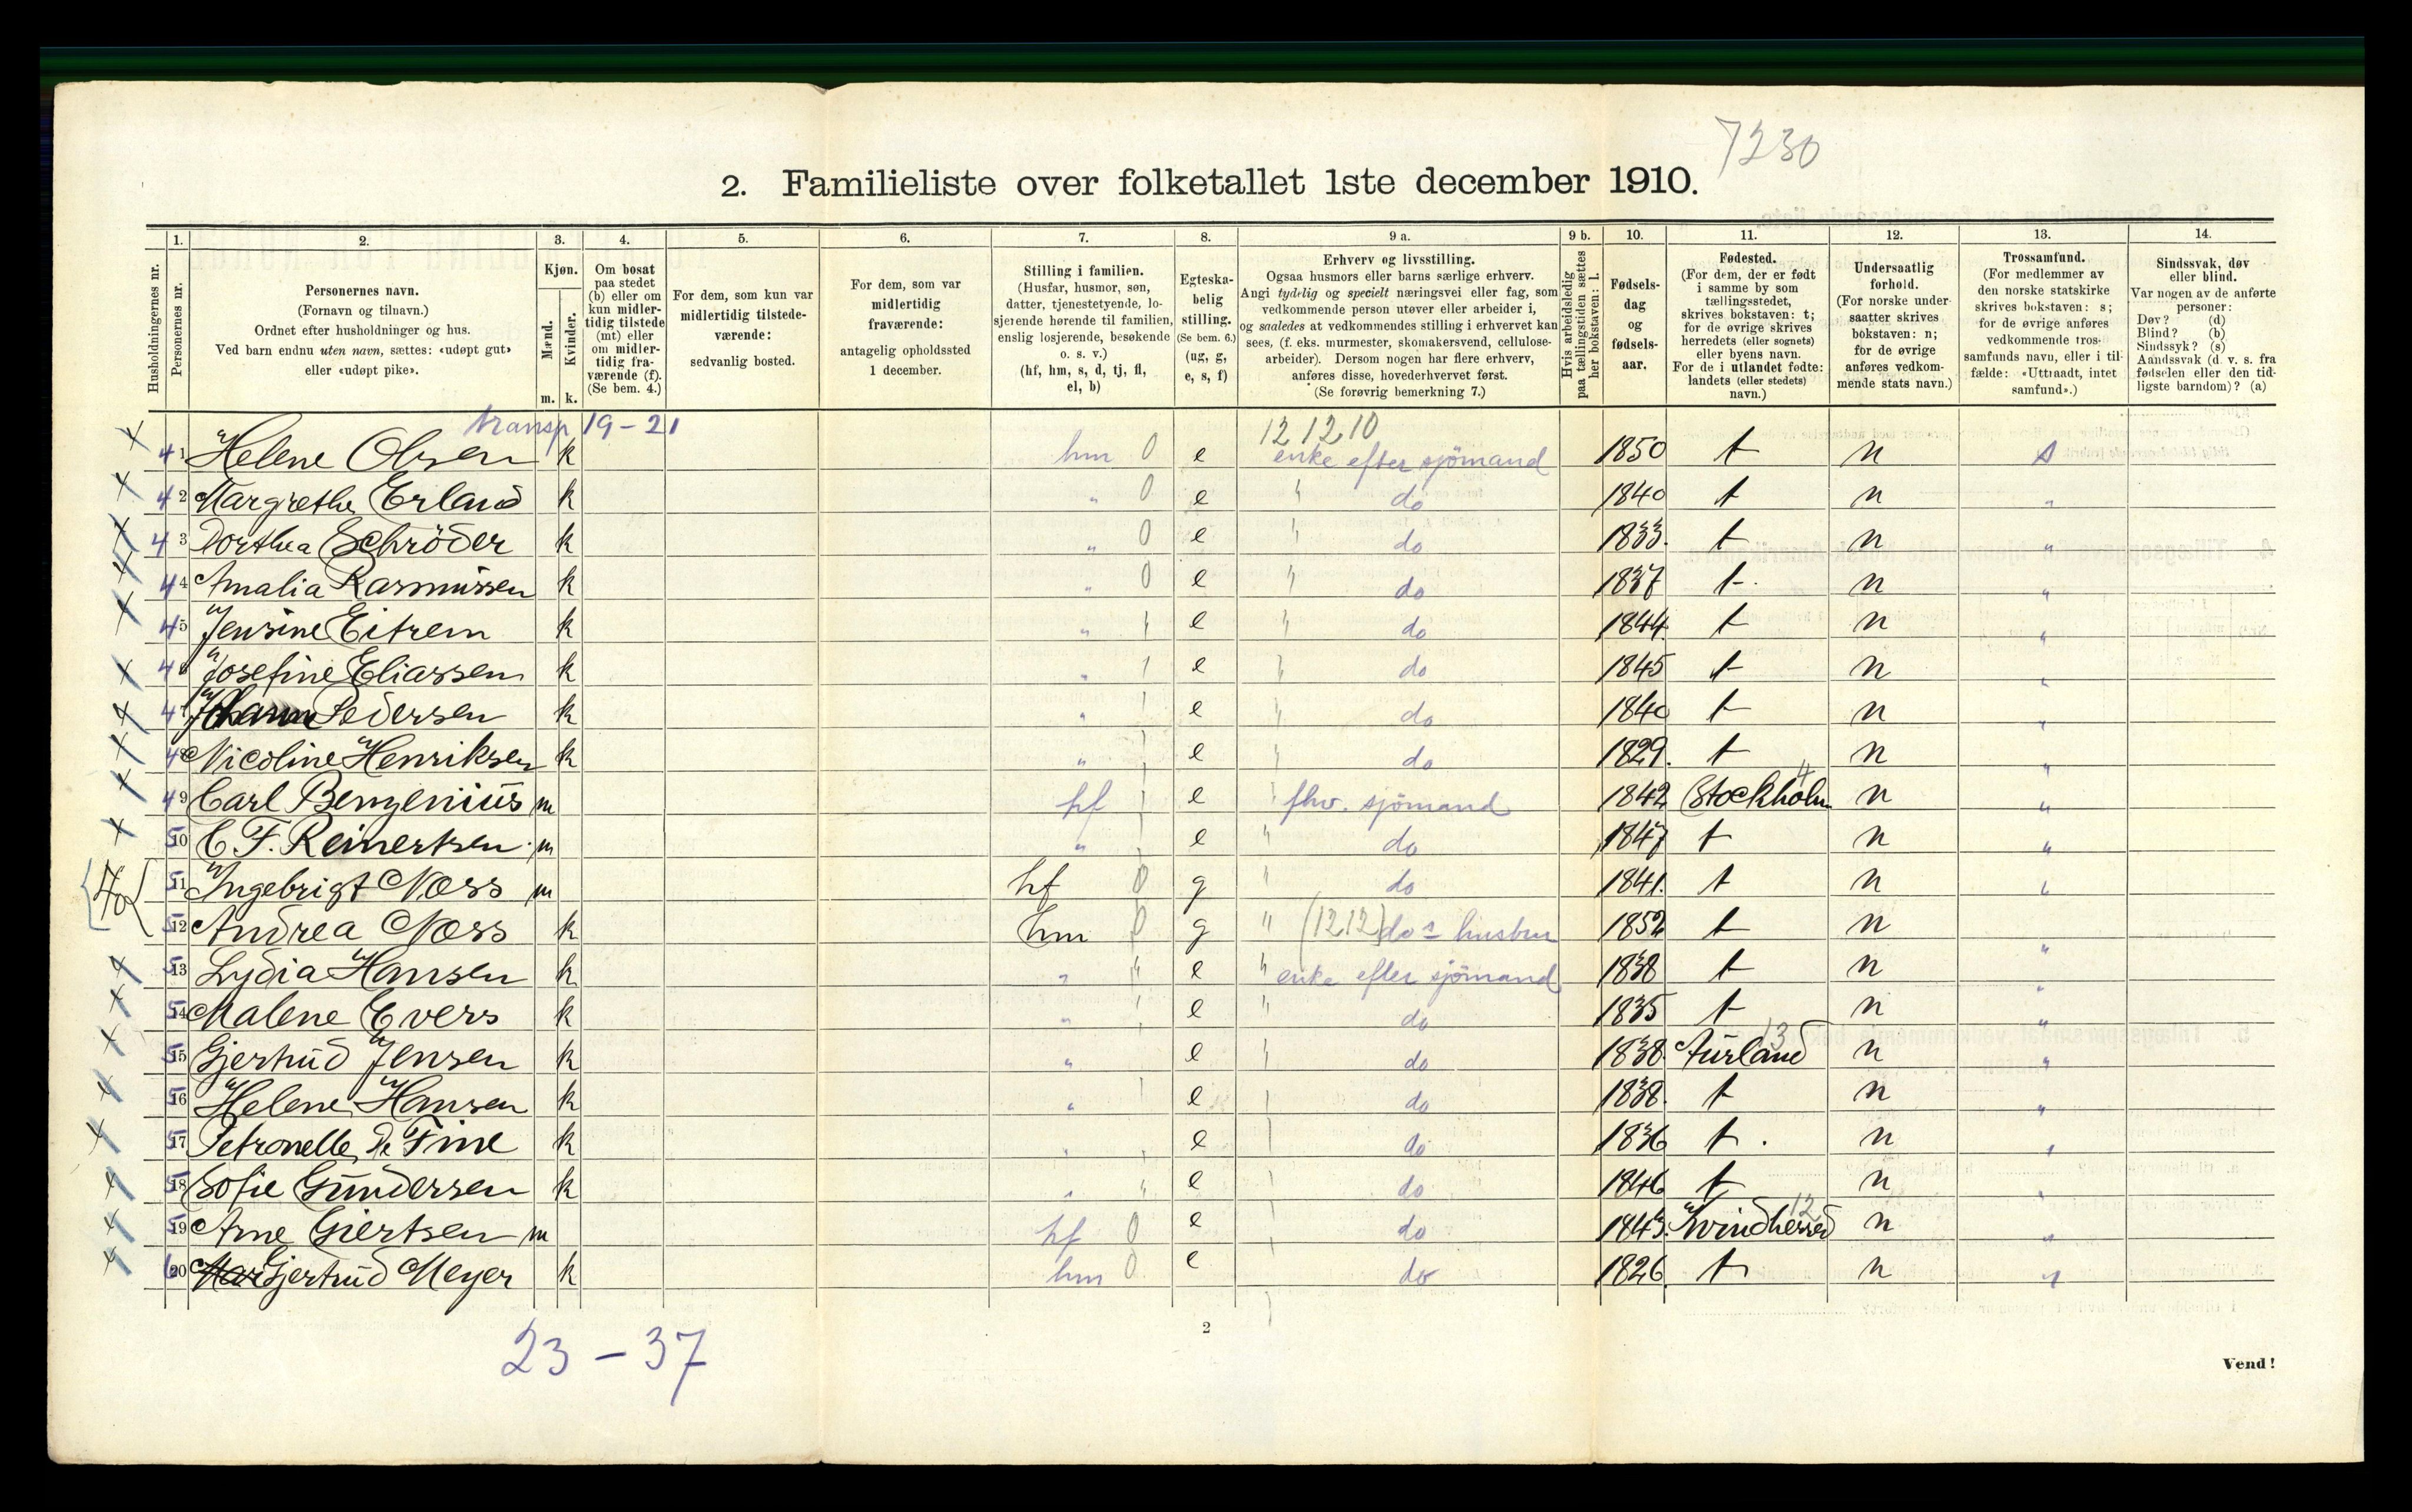 7230
2. Familieliste over folketallet 1ste december 1910.
1. 2. 3. 4. 5. 6. 7. 8. 9 a. 9 b. 10. 11. 12. 13. 14.
Husholdningernes nr.
Personernes nr.
Personernes navn.
(Fornavn og tilnavn.)
Ordnet efter husholdninger og hus.
Ved barn endnu uten navn, sættes: «udøpt gut»
eller «udøpt pike».
Kjøn.
Mænd.
Kvinder.
m. k.
Om bosat
paa stedet
(b) eller om
kun midler-
tidig tilstede
(mt) eller
om midler-
tidig fra-
værende (f).
(Se bem. 4.)
For dem, som kun var
midlertidig tilstede-
værende:
sedvanlig bosted.
For dem, som var
midlertidig
fraværende:
antagelig opholdssted
1 december.
Stilling i familien.
(Husfar, husmor, søn,
datter, tjenestetyende, lo-
sjerende hørende til familien,
enslig losjerende, besøkende
o. s. v.)
(hf, hm, s, d, tj, fl,
el, b)
Egteska-
belig
stilling.
(Se bem. 6.)
(ug, g,
e, s, f)
Erhverv og livsstilling.
Ogsaa husmors eller barns særlige erhverv.
Angi tydelig og specielt næringsvei eller fag, som
vedkommende person utøver eller arbeider i,
og saaledes at vedkommendes stilling i erhvervet kan
sees, (f. eks. murmester, skomakersvend, cellulose-
arbeider). Dersom nogen har flere erhverv,
anføres disse, hovederhvervet først.
(Se forøvrig bemerkning 7.)
Hvis arbeidsledig
paa tællingstiden sættes
her bokstaven: l.
Fødsels-
dag
og
fødsels-
aar.
Fødested.
(For dem, der er født
i samme by som
tællingsstedet,
skrives bokstaven: t;
for de øvrige skrives
herredets (eller sognets)
eller byens navn.
For de i utlandet fødte:
landets (eller stedets)
navn.)
Undersaatlig
forhold.
(For norske under-
saatter skrives
bokstaven: n;
for de øvrige
anføres vedkom-
mende stats navn.)
Trossamfund.
(For medlemmer av
den norske statskirke
skrives bokstaven: s;
for de øvrige anføres
vedkommende tros-
samfunds navn, eller i til-
fælde: «Uttraadt, intet
samfund».)
Sindssvak, døv
eller blind.
Var nogen av de anførte
personer:
Døv? (d)
Blind? (b)
Sindssyk? (s)
Aandssvak (d. v. s. fra
fødselen eller den tid-
ligste barndom)? (a)
transp 19-21 12 12 10
41 Helene Olsen k hm 0 e enke efter sjömand 1850 t n s
42 Margrethe Erland k " 0 e " do 1840 t n "
43 Dorthea Schröder k " 0 e " do 1833. t n "
44 Amalia Rasmussen k " 0 e " do 1837 t. n "
45 Jensine Eitrem k " e " do 1844 t n "
46 Josefine Eliassen k " e " do 1845 t n "
47 Pedersen k " e " do 1840 t n "
48 Nicoline Henriksen k " e " do 1829. t n "
49 Carl Benzenius m hf e " fhv. sjömand 1842 Stockholm n "
50 C F. Reinertsen m " e " do 1847 t n "
51 Ingebrigt Noss m hf 0 g " do 1841. t n "
52 Andrea Noss k hm 0 g " (12 12) do s hustru 1852 t n "
53 Lydia Hansen k " e " enke efter sjömand 1838 t n "
54 Malene Evers k " e " do 1835 t n "
55 Gjertrud Jensen k " e " do 1838. Aurland 13 n "
56 Helene Hansen k " e do 1838. t n "
57 Petronelle De Fine k " e do 1836 t. n "
58 Sofie Gundersen k " e do 1846 t n "
59 Arne Giertsen m hf 0 e do 1843. Kvindherred 12 n "
60 Gjertrud Meyer k hm 0 e do 1826. t n "
23 - 37
2
Vend!